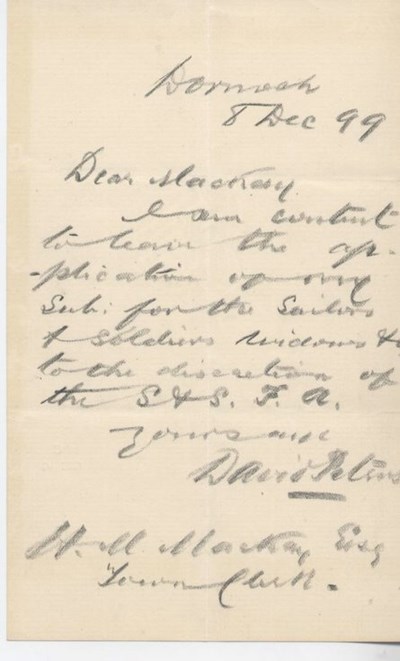 Dornoch
8 Dec 99
Dear Mackay
I am content
to leave the ap-
-plication of my
Sub: for the Sailors
& Soldiers Widows &c
to the discretion of
the S & S. F. A.
Yours
David
H. M. Mackay Esq
Town Clerk.